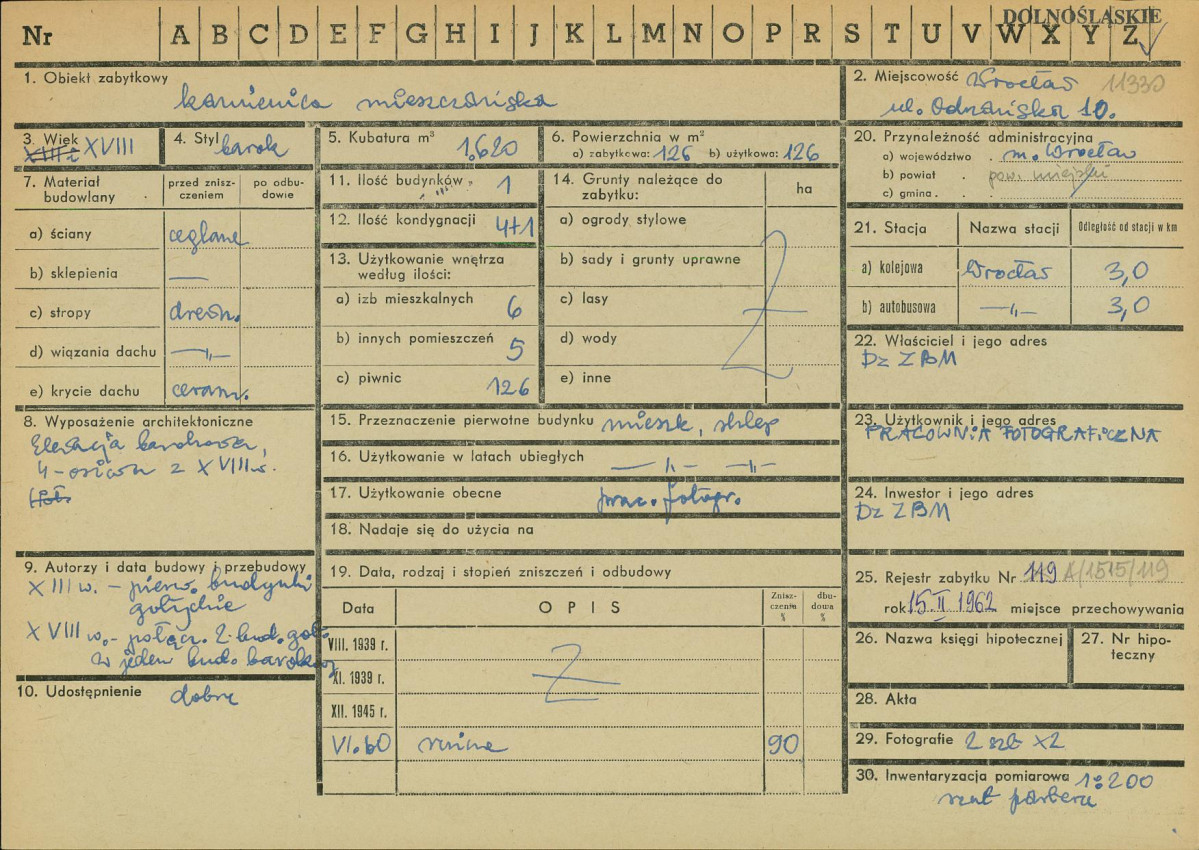 DOLNOŚLĄSKIE
Nr A B C D E F G H I J K L M N O P R S T U V W X Y Z
1. Obiekt zabytkowy
kamienica mieszczańska
2. Miejscowość Wrocław 11330
ul. Odrzańska 10.
3. Wiek XIII i XVIII
4. Styl barok
5. Kubatura m³ 1.620
6. Powierzchnia w m²
a) zabytkowa: 126 b) użytkowa: 126
7. Materiał budowlany
przed zniszczeniem
po odbudowie
a) ściany ceglane
b) sklepienia —
c) stropy drewn.
d) wiązania dachu —„—
e) krycie dachu ceram.
8. Wyposażenie architektoniczne
Elewacja barokowa,
4-osiowa z XVIII w.
9. Autorzy i data budowy i przebudowy
XIII w. - pierw. budynki
gotyckie
XVIII w. - połącz. 2 bud. got.
w jeden bud. barokowy
10. Udostępnienie dobre
11. Ilość budynków 1
12. Ilość kondygnacji 4+1
13. Użytkowanie wnętrza
według ilości:
a) izb mieszkalnych 6
b) innych pomieszczeń 5
c) piwnic 126
14. Grunty należące do
zabytku:
ha
a) ogrody stylowe
b) sady i grunty uprawne
c) lasy
d) wody
e) inne
15. Przeznaczenie pierwotne budynku mieszk, sklep
16. Użytkowanie w latach ubiegłych —„— —„—
17. Użytkowanie obecne prac. fotogr.
18. Nadaje się do użycia na
19. Data, rodzaj i stopień zniszczeń i odbudowy
Data OPIS Zniszczenia % dbudowa %
VIII. 1939 r.
XI. 1939 r.
XII. 1945 r.
VI. 60 90
20. Przynależność administracyjna
a) województwo . m. Wrocław
b) powiat . pow. miejski
c) gmina .
21. Stacja Nazwa stacji Odległość od stacji w km
a) kolejowa Wrocław 3,0
b) autobusowa —„— 3,0
22. Właściciel i jego adres
Dz ZBM
23. Użytkownik i jego adres
PRACOWNIA FOTOGRAFICZNA
24. Inwestor i jego adres
Dz ZBM
25. Rejestr zabytku Nr 119 A/1515/119
rok 15. II 1962 miejsce przechowywania
26. Nazwa księgi hipotecznej
27. Nr hipoteczny
28. Akta
29. Fotografie 2 szt x2
30. Inwentaryzacja pomiarowa 1:200
rzut parteru